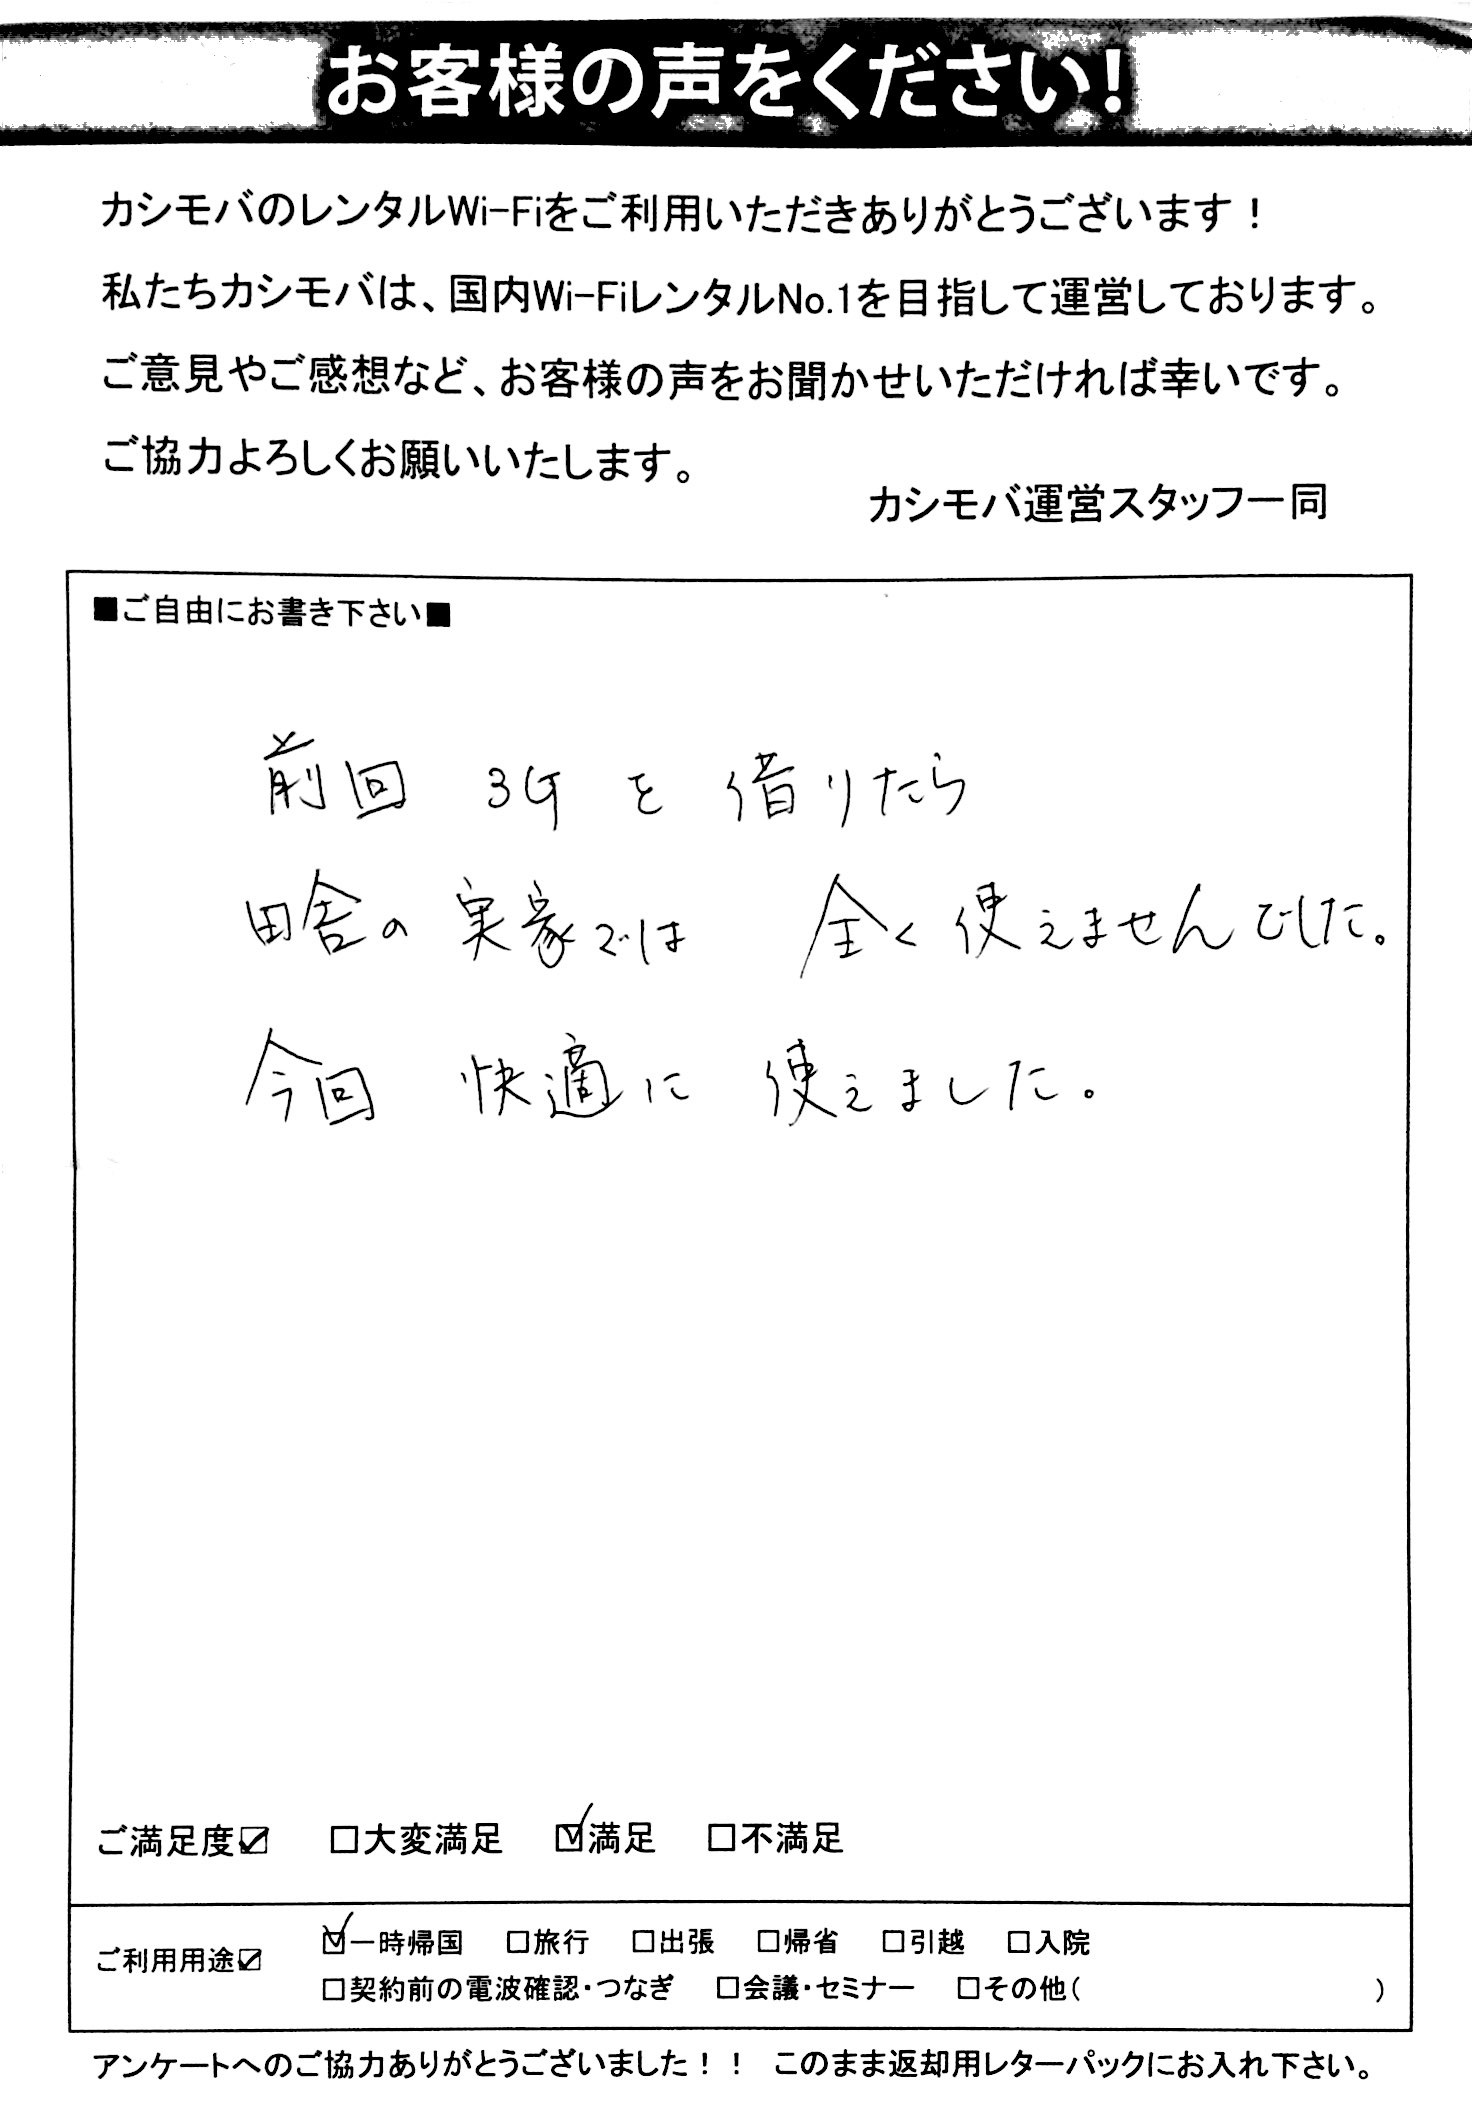 お客様の声をください！
カシモバのレンタルWi-Fiをご利用いただきありがとうございます！
私たちカシモバは、国内Wi-FiレンタルNo.1を目指して運営しております。
ご意見やご感想など、お客様の声をお聞かせいただければ幸いです。
ご協力よろしくお願いいたします。
カシモバ運営スタッフ一同
■ご自由にお書き下さい■
前回 3G を 借りたら
田舎の 実家では 全く使えませんでした。
今回 快適に 使えました。
ご満足度☑ □大変満足 ☑満足 □不満足
ご利用用途☑ ☑一時帰国 □旅行 □出張 □帰省 □引越 □入院
□契約前の電波確認・つなぎ □会議・セミナー □その他( )
アンケートへのご協力ありがとうございました！！ このまま返却用レターパックにお入れ下さい。